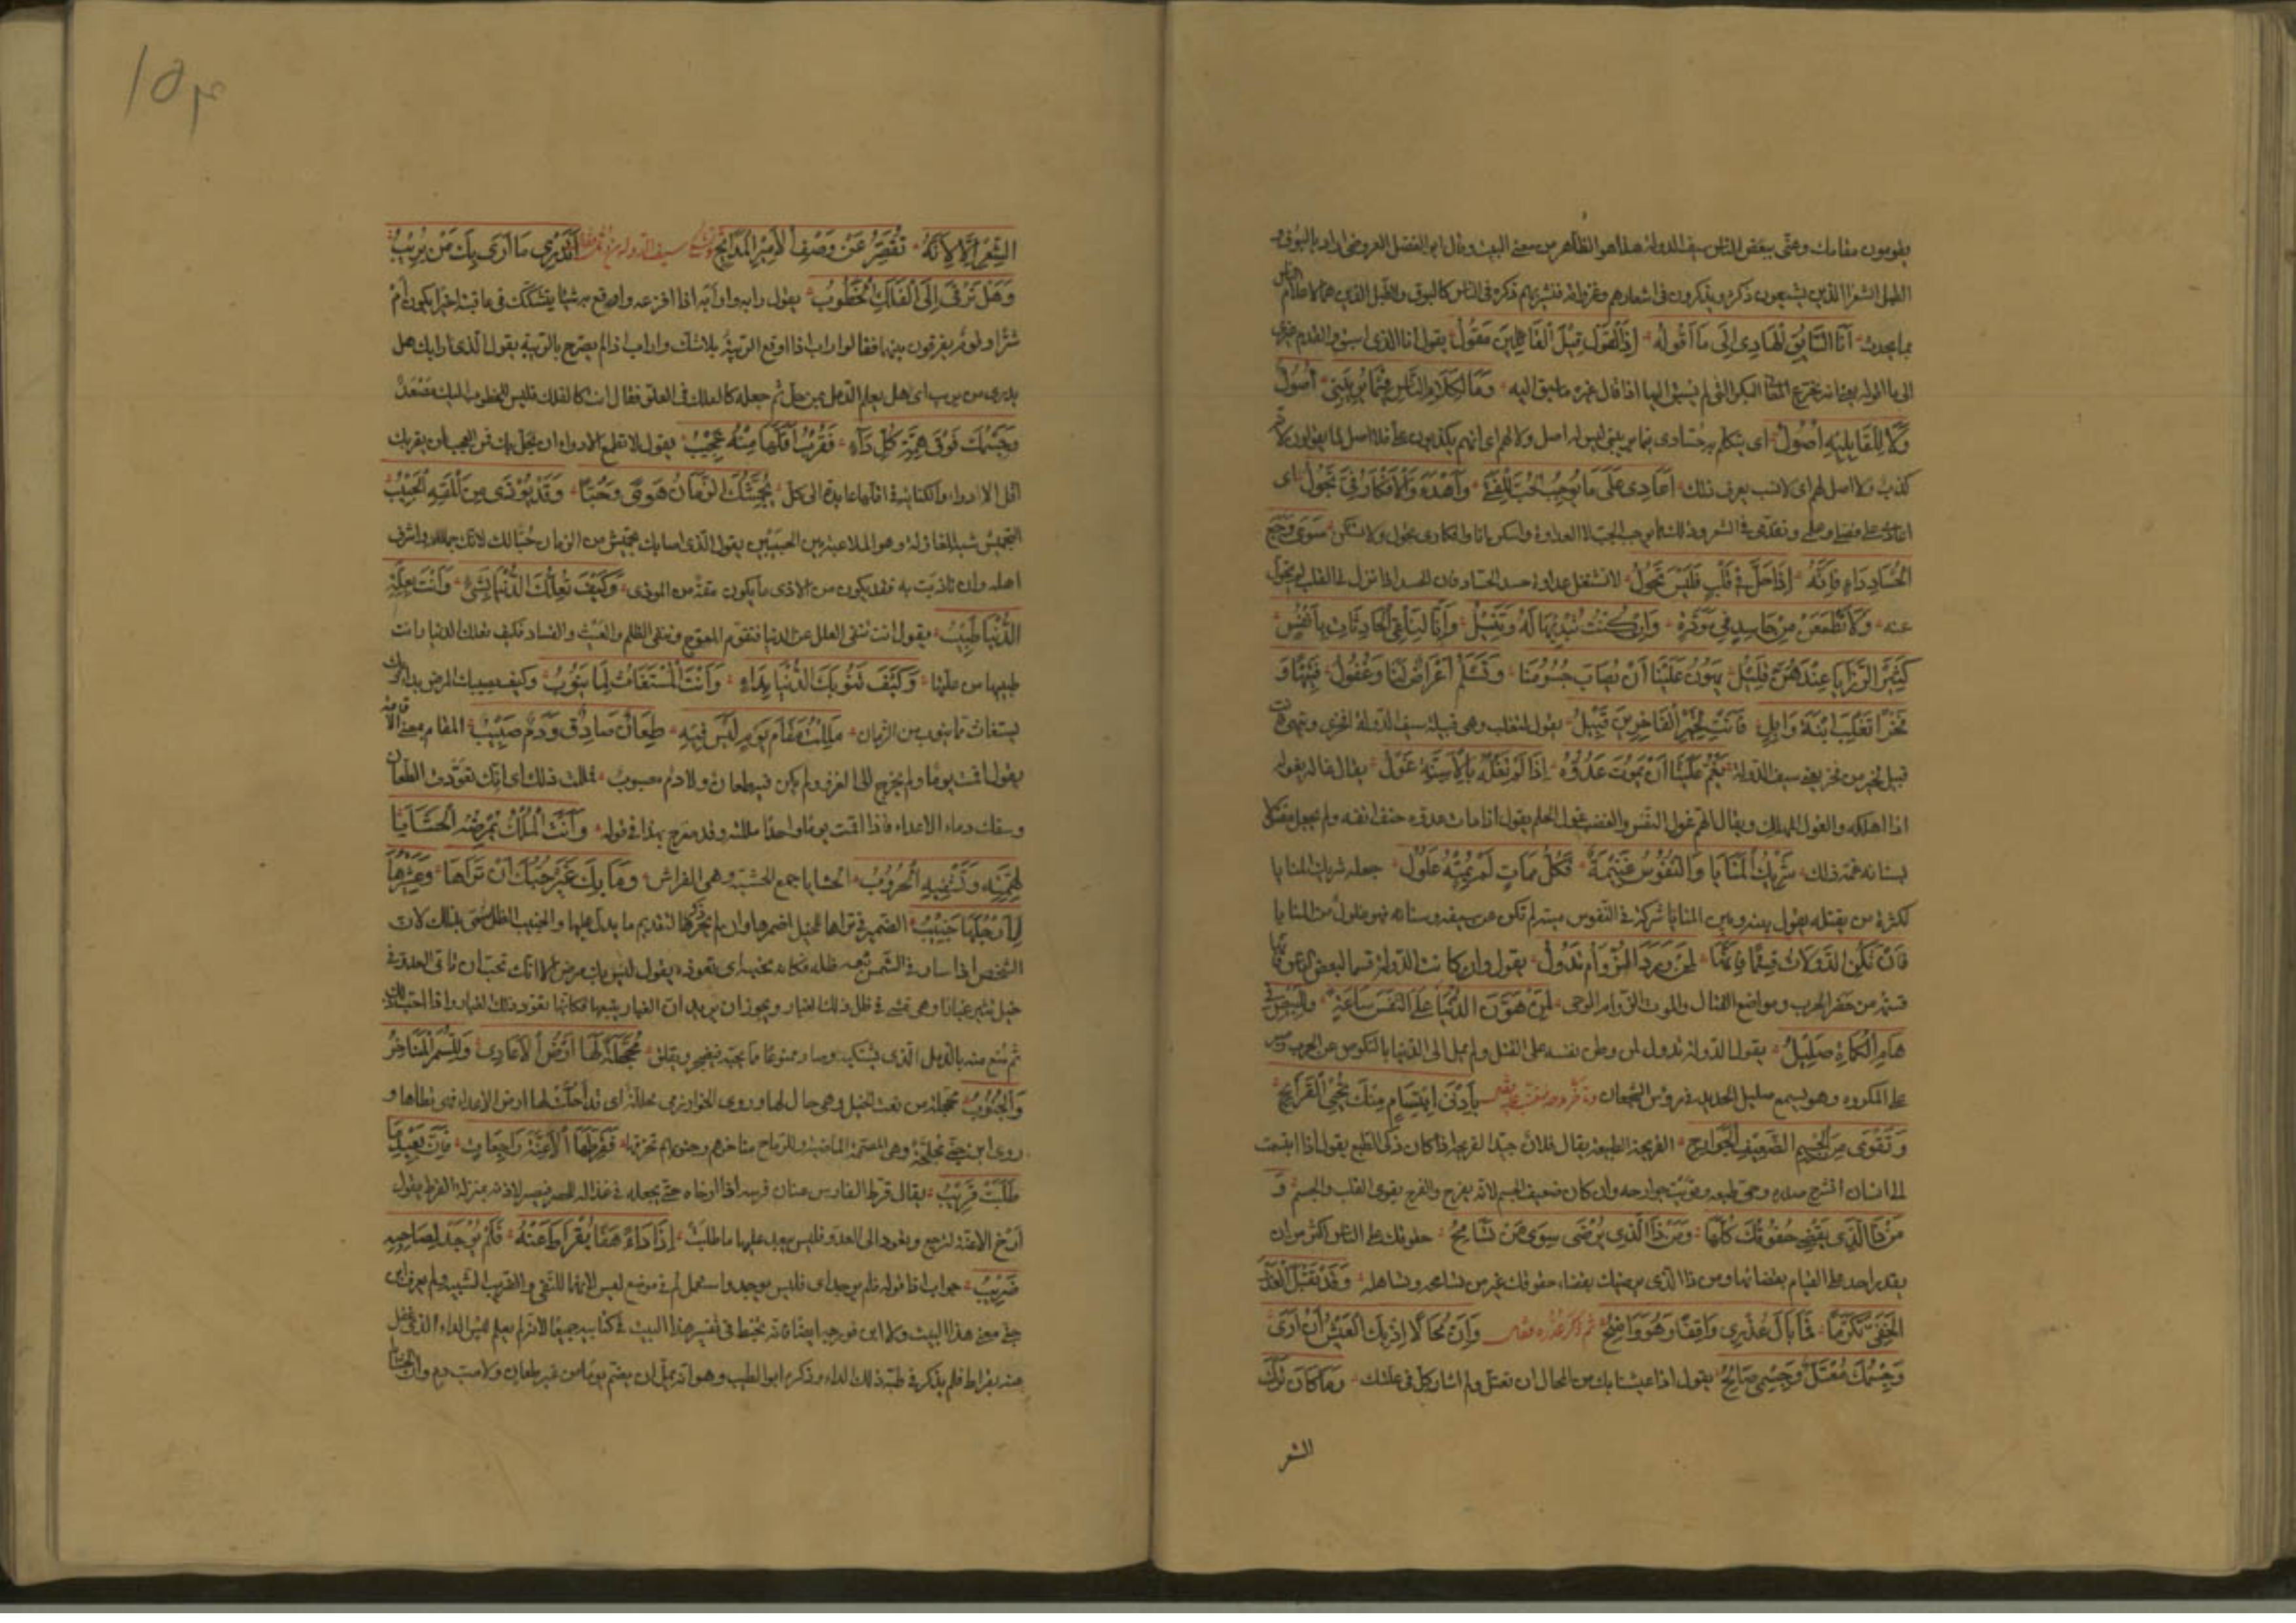 يقومون مقامك وعنى ببعض الناس سيف الدولة هذا هو الظاهر من معنى البيت وقال ابو الفضل العروضى اراد بالبوق و
الطبل الشعراء الذين يشيعون ذكره ويذكرون فى اشعارهم وغزواته فينشر بهم ذكره فى الناس كالبوق والطبل الذين هما لاعلام الناس
بما يحدث أَنَا السَّابِقُ الْهَادِى اِلَى مَا اَقُولُهُ اِذِ الْقَوْلُ قَبْلَ الْقَائِلِينَ مَقُولُ يقول انا الذى اسبق
الى ما اقوله البكر التى لم يسبق اليها اذا قال غيره ما سبق اليه وَمَا لِكَلَامِ النَّاسِ فِيمَا يُرِيبُنِى اُصُولٌ
وَلَا لِلْقَائِلِيهِ اُصُولُ اى يتكلم به حسادى فيما يريبنى ليس له اصل ولا لهم اى انهم يكذبون على فلا اصل لما يقولون لانه
كذب ولا اصل لهم اى لا نسب يعرف ذلك اُعَادَى عَلَى مَا يُوجِبُ الْحُبَّ لِلْفَتَى وَاَهْدَءُ وَالْاَفْكَارُ فِىَّ تَجُولُ اى
اعادى على فضلى وعلمى وتقدمى فى الشعر وذلك مما يوجب الحب لا العداوة واسكن انا وافكارى تجول ولا تسكن سِوَى وَجَعِ
الْحُسَّادِ دَاوِ فَاِنَّهُ اِذَا حَلَّ فِى قَلْبٍ فَلَيْسَ يَحُولُ لا تشتغل بمداواة حسد الحساد فان الحسد اذا نزل فى القلب لم يتحول
عنه وَلَا تَطْمَعَنْ مِنْ حَاسِدٍ فِى مَوَدَّةٍ وَاِنْ كُنْتَ تُبْدِيهَا لَهُ وَتُنِيلُ وَاِنَّا لَنَلْقَى الْحَادِثَاتِ بِاَنْفُسٍ
كَثِيرُ الرَّزَايَا عِنْدَهُنَّ قَلِيلُ يَهُونُ عَلَيْنَا اَنْ تُصَابَ جُسُومُنَا وَتَسْلَمَ اَعْرَاضٌ لَنَا وَعُقُولُ فَتِيهًا وَ
فَخْرًا تَغْلِبَ ابْنَةَ وَائِلٍ فَاَنْتِ لِخَيْرِ الْفَاخِرِينَ قَبِيلُ يقول لتغلب وهى قبيلة سيف الدولة افخرى وتيهى فانت
قبيل لخير من فخر يعنى سيف الدولة يَغُمُّ عَلِيًّا اَنْ يَمُوتَ عَدُوُّهُ اِذَا لَمْ تَغُلْهُ بِالْاَسِنَّةِ غُولُ يقال غاله يغوله
اذا اهلكه والغول المهلك ويقال الهم غول النفس والغضب غول الحلم يقول اذا مات عدوه حتف انفه ولم يجعل مقتولا
بسنانه غمه ذلك شَرِيكُ الْمَنَايَا وَالنُّفُوسُ غَنِيمَةٌ فَكُلُّ مَمَاتٍ لَمْ يُمِتْهُ غُلُولُ جعله شريك المنايا
لكثرة من يقتله يقول بينه وبين المنايا شركة فى النفوس ميتة لم تكن عن سيفه وسنانه فهو غلول من المنايا
فَاِنْ تَكُنِ الدَّوْلَاتُ قِسْمًا فَاِنَّهَا لِمَنْ وَرَدَ الْمَوْتَ الزُّؤَامَ تَدُولُ يقول وان كانت الدولة قسما لبعض الناس فانها
قسم من حضر الحرب ومواضع القتال والموت الزوام الوحى لِمَنْ هَوَّنَ الدُّنْيَا عَلَى النَّفْسِ سَاعَةً وَلِلْبِيضِ فِى
هَامِ الْكُمَاةِ صَلِيلُ يقول الدولة تدول لمن وطن نفسه على القتل ولم يمل الى الدنيا بالنكوص عن الحرب وصبر
على المكروه وهو يسمع صليل الحديد فى رؤس الشجعان بِاَدْنَى ابْتِسَامٍ مِنْكَ تَحْيَى الْقَرَائِحُ
وَتَقْوَى مِنَ الْجِسْمِ الضَّعِيفِ الْجَوَارِحُ القريحة الطبيعة يقال فلان جيد القريحة اذا كان ذكى الطبع يقول اذا ابتسمت
الى انسان انشرح صدره وحى طبعه وقويت جوارحه وان كان ضعيف الجسم لانه يفرح والفرح يقوى القلب والجسم وَ
مَنْ ذَا الَّذِى يَقْضِى حُقُوقَكَ كُلَّهَا وَمَنْ ذَا الَّذِى يُرْضِى سِوَى مَنْ تُسَامِحُ حقوقك على الناس اكثر من ان
يقدر احد على القيام بقضائها ومن ذا الذى يرضيك بقضاء حقوقك غير من تسامحه وتساهله وَقَدْ تَقْبَلُ الْعُذْرَ
الْخَفِىَّ تَكَرُّمًا فَمَا بَالُ عُذْرِى وَاقِفًا وَهُوَ وَاضِحُ وَاِنَّ مُحَالًا اِذْ بِكَ الْعَيْشُ اَنْ اُرَى
وَجِسْمُكَ مُعْتَلٌّ وَجِسْمِى صَالِحُ يقول اذا عيشنا بك من المحال ان تعتل ولم اشاركك فى علتك وَمَا كَانَ تَرْكُ
الشعر
١٥٣
الشِّعْرِ اِلَّا لِاَنَّهُ تُقَصِّرُ عَنْ وَصْفِ الْاَمِيرِ الْمَدَائِحُ اَيَدْرِى مَا اَرَابَكَ مَنْ يُرِيبُ
وَهَلْ تَرْقَى اِلَى الْفَلَكِ الْخُطُوبُ يقول رابه وارابه اذا افزعه واوقع به شيئا يشككه فى عاقبته اخيرا يكون ام
شرا وقوم يفرقون بينهما فقالوا راب اذا اوقع الريبة بلا شك واراب اذا لم يصرح بالريبة يقول الذى ارابك هل
يدرى من يريب اى هل يعلم الدمل بمن حل ثم جعله كالفلك فى العلو فقال انت كالفلك فليس للخطوب اليك مصعد
وَجِسْمُكَ فَوْقَ هِمَّةِ كُلِّ دَاءٍ فَقُرْبُ اَقَلِّهَا مِنْهُ عَجِيبُ يقول لا تطمع الادواء ان تحل بك فمن العجب ان يقربك
اقل الادواء والكناية فى اقلها عايدة الى كل يُجَمِّشُكَ الزَّمَانُ هَوًى وَحُبًّا وَقَدْ يُؤْذَى مِنَ الْمِقَةِ الْحَبِيبُ
التجميش شبه المغازلة وهو الملاعبة بين الحبيبين يقول الذى اصابك تجميش من الزمان حبا لك لانك جماله واشرف
اهله وان تاذيت به فقد يكون من الاذى ما يكون مقة من الموذى وَكَيْفَ تُعِلُّكَ الدُّنْيَا بِشَىْءٍ وَاَنْتَ لِعِلَّةِ
الدُّنْيَا طَبِيبُ يقول انت تنفى العلل عن الدنيا فتقوم المعوج وتنفى الظلم والعيث والفساد فكيف تعلك الدنيا وانت
طبيبها من علتها وَكَيْفَ تَنُوبُكَ الدُّنْيَا بِدَاءٍ وَاَنْتَ الْمُسْتَغَاثُ لِمَا يَنُوبُ وكيف يصيبك المرض بداء وبك
يستغاث مما ينوب من الزمان مَلِلْتَ مُقَامَ يَوْمٍ لَيْسَ فِيهِ طِعَانٌ صَادِقٌ وَدَمٌ صَبِيبُ المقام بمعنى الاقامة
يقول اقمت يوما ولم تخرج الى الغزو ولم يكن فيه طعان ولا دم مصبوب فمللت ذلك اى انك تعودت الطعان
وسفك دماء الاعداء فاذا اقمت يوما واحدا مللته وقد صرح بهذا فى قوله وَاَنْتَ الْمَلْكُ تُمْرِضُهُ الْحَشَايَا
لِهِمَّتِهِ وَتَشْفِيهِ الْحُرُوبُ الحشايا جمع الحشية وهى الفراش وَمَا بِكَ غَيْرُ حُبِّكَ اَنْ تَرَاهَا وَعِثْيَرُهَا
لِاَرْجُلِهَا جَنِيبُ الضمير فى تراها للخيل اضمرها وان لم يجر ذكرها لتقديم ما يدل عليها والجنيب الظل سمى بذلك لان
الشخص اذا سار فى الشمس تبعه ظله فكانه يجنبه اى يقوده يقول ليس بك مرض الا انك تحب ان تاتى العدو فى
خيل تثير غبارا وهى تمشى فى ظل ذلك الغبار ويجوز ان يريد ان الغبار يتبعها فكانها تقود ذلك الغبار
ثم منع منه بالدمل الذى يشتكيه وصار ممنوعا مما يحبه فيضجر ويقلق مُجَلَّحَةً لَهَا اَرْضُ الْاَعَادِى وَلِلسُّمْرِ الْمَنَاخِرُ
وَالْجُنُوبُ من نعت الخيل وهى حال لها وروى الخوارزمى محللة اى قد احلت لها ارض الاعداء فهى تطاها و
روى ابن جنى مجلحة وهى المصممة الماضية وللرماح مناخرهم وجنوبهم تخرقها فَقَرِّطْهَا الْاَعِنَّةَ رَاجِعَاتٍ فَاِنَّ بَعِيدَ مَا
طَلَبَتْ قَرِيبُ يقال قرط الفارس عنان فرسه اذا ارخاه حتى يجعله فى قذاله للحضر فيصير لاذنه بمنزلة القرط يقول
ارخ الاعنة لترجع وتعود الى العدو فليس ببعيد عليها ما طلبت اِذَا دَاءٌ هَفَا بُقْرَاطُ عَنْهُ فَلَمْ يُوجَدْ لِصَاحِبِهِ
ضَرِيبُ جواب اذا قوله فلم يوجد اى فليس يوجد واستعمل لم فى موضع ليس لانهما للنفى والضريب الشبيه ولم يعرف ابن
جنى معنى هذا البيت ولا ابن فورجة ايضا فانه تخبط فى تفسير هذا البيت فى كتابيه جميعا لانه لم يعلم ايش الداء الذى غفل
عنه بقراط فلم يذكر فى طبه ذلك الداء وذكره ابو الطيب وهو انه يمل ان يقيم يوما من غير طعان ولا صب دم وان الحشايا